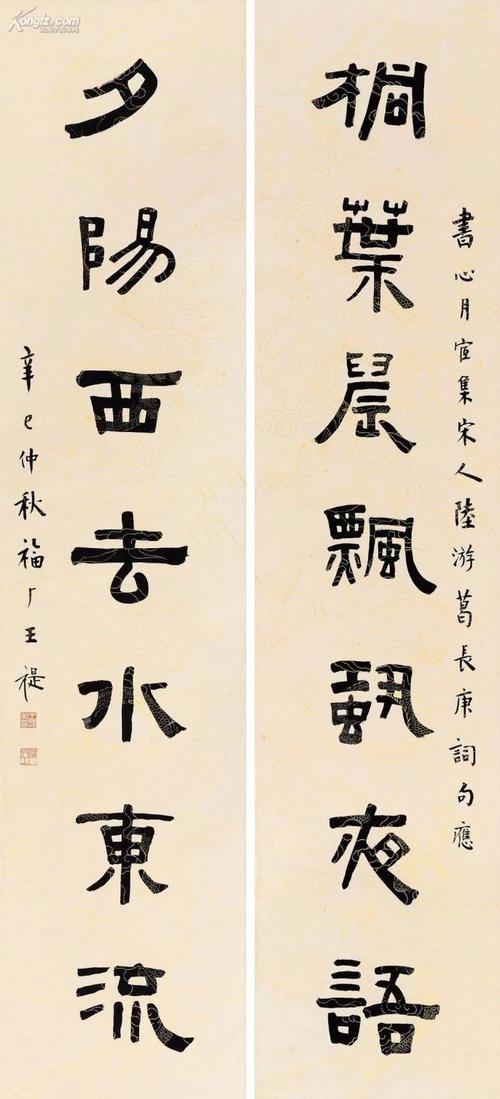 Kongfz.com
桐葉晨飄蛩夜語
書心月宧集宋人陸游葛長庚詞句應
夕陽西去水東流
辛巳仲秋福厂王禔